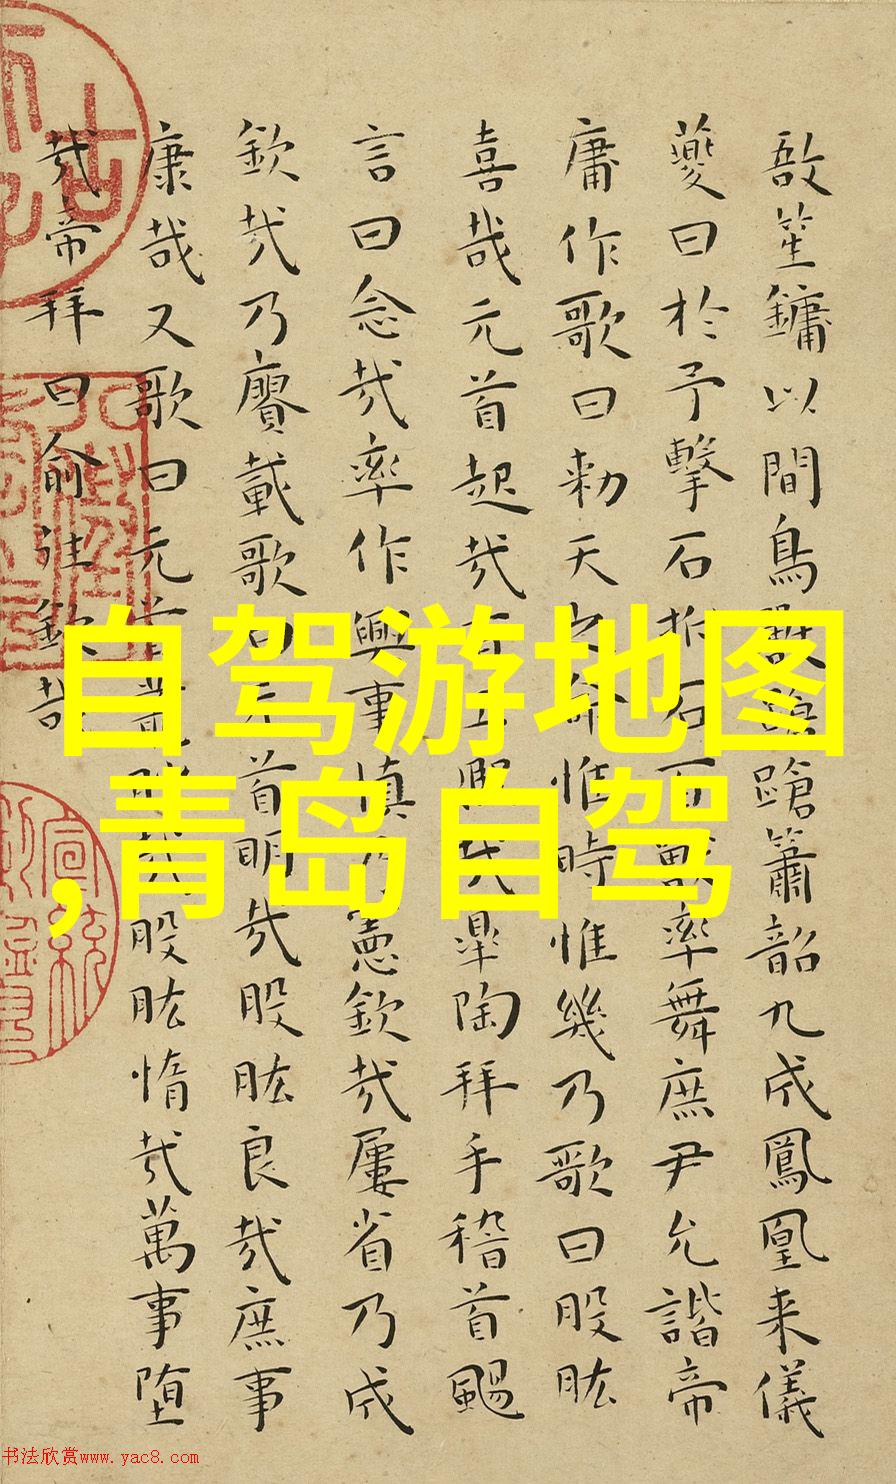 敔笙鏞以間鳥獸蹌蹌簫韶九成鳳凰来儀
夔曰於予擊石拊石百獸率舞庶尹允諧帝
庸作歌曰勑天之命惟時惟幾乃歌曰股肱
喜哉元首起哉百工熙哉皋陶拜手稽首颺
言曰念哉率作興事慎乃憲欽哉屢省乃成
欽哉乃賡載歌曰元首明哉股肱良哉庶事
康哉又歌曰元首叢脞哉股肱惰哉萬事堕
哉帝拜曰俞往欽哉
自驾游地图
,青岛自驾
书法欣赏www.yac8.com